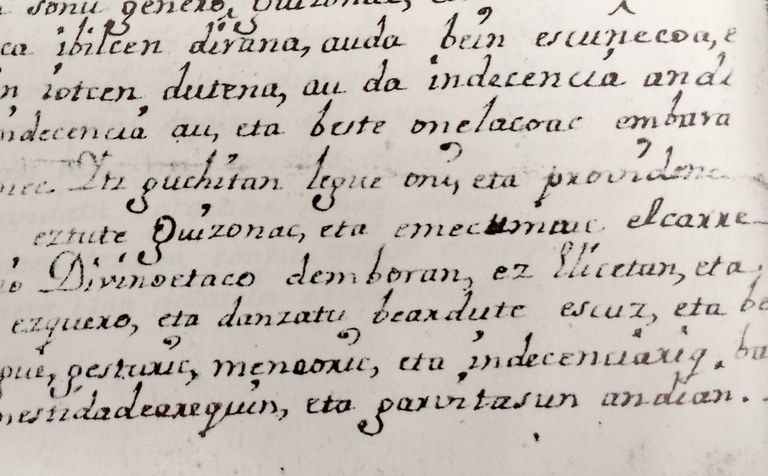 sonu genero, Guizonac,
ca ibilcen dirana, auda bein escuñecoa, e
n iotcen dutena, au da indecencia andi
ndecencia au, eta beste onelacoac embara
guchitan legue oni, eta providenc
eztute Guizonac, eta emecumeac elcarre
io Divinoetaco demboran, ez Elicetan, eta
ezquero, eta danzatu beardute escuz, eta be
pue, gesturic, meneoric, eta indecenciaric, ba
nestidadearequin, eta garvitasun andian.